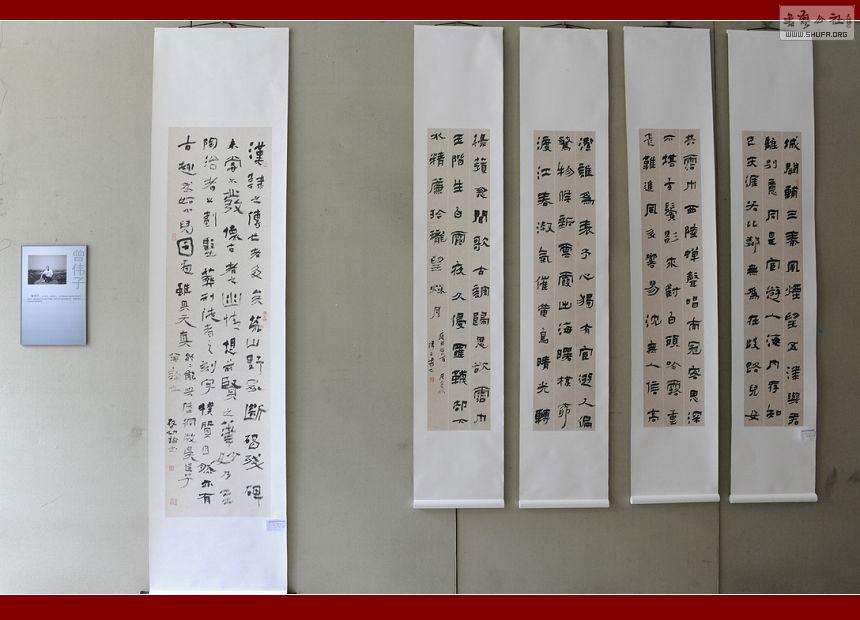 书法公社
WWW.SHUFA.ORG
曾伟子
城闕輔三秦風煙望五津與君
離別意同是宦遊人海内存知
己天涯若比鄰無為在歧路兒女
共霑巾西陸蟬聲唱南冠客思深
不堪玄鬢影來對白頭吟露重
飛難進風多響易沈無人信高
潔誰為表予心獨有宦遊人偏
驚物候新雲霞出海曙梅柳
渡江春淑氣催黄鳥晴光轉
綠蘋忽聞歌古調歸思欲霑巾
玉階生白露夜久侵羅襪却下
水精簾玲瓏望秋月
漢隸之傳世者多矣然山野斷碣殘碑
未嘗不發懷古者之幽情想前賢之筆妙乃至
陶冶者之劃墼葬刑徒者之刻字樸質自然亦有
古趣
雖具天真